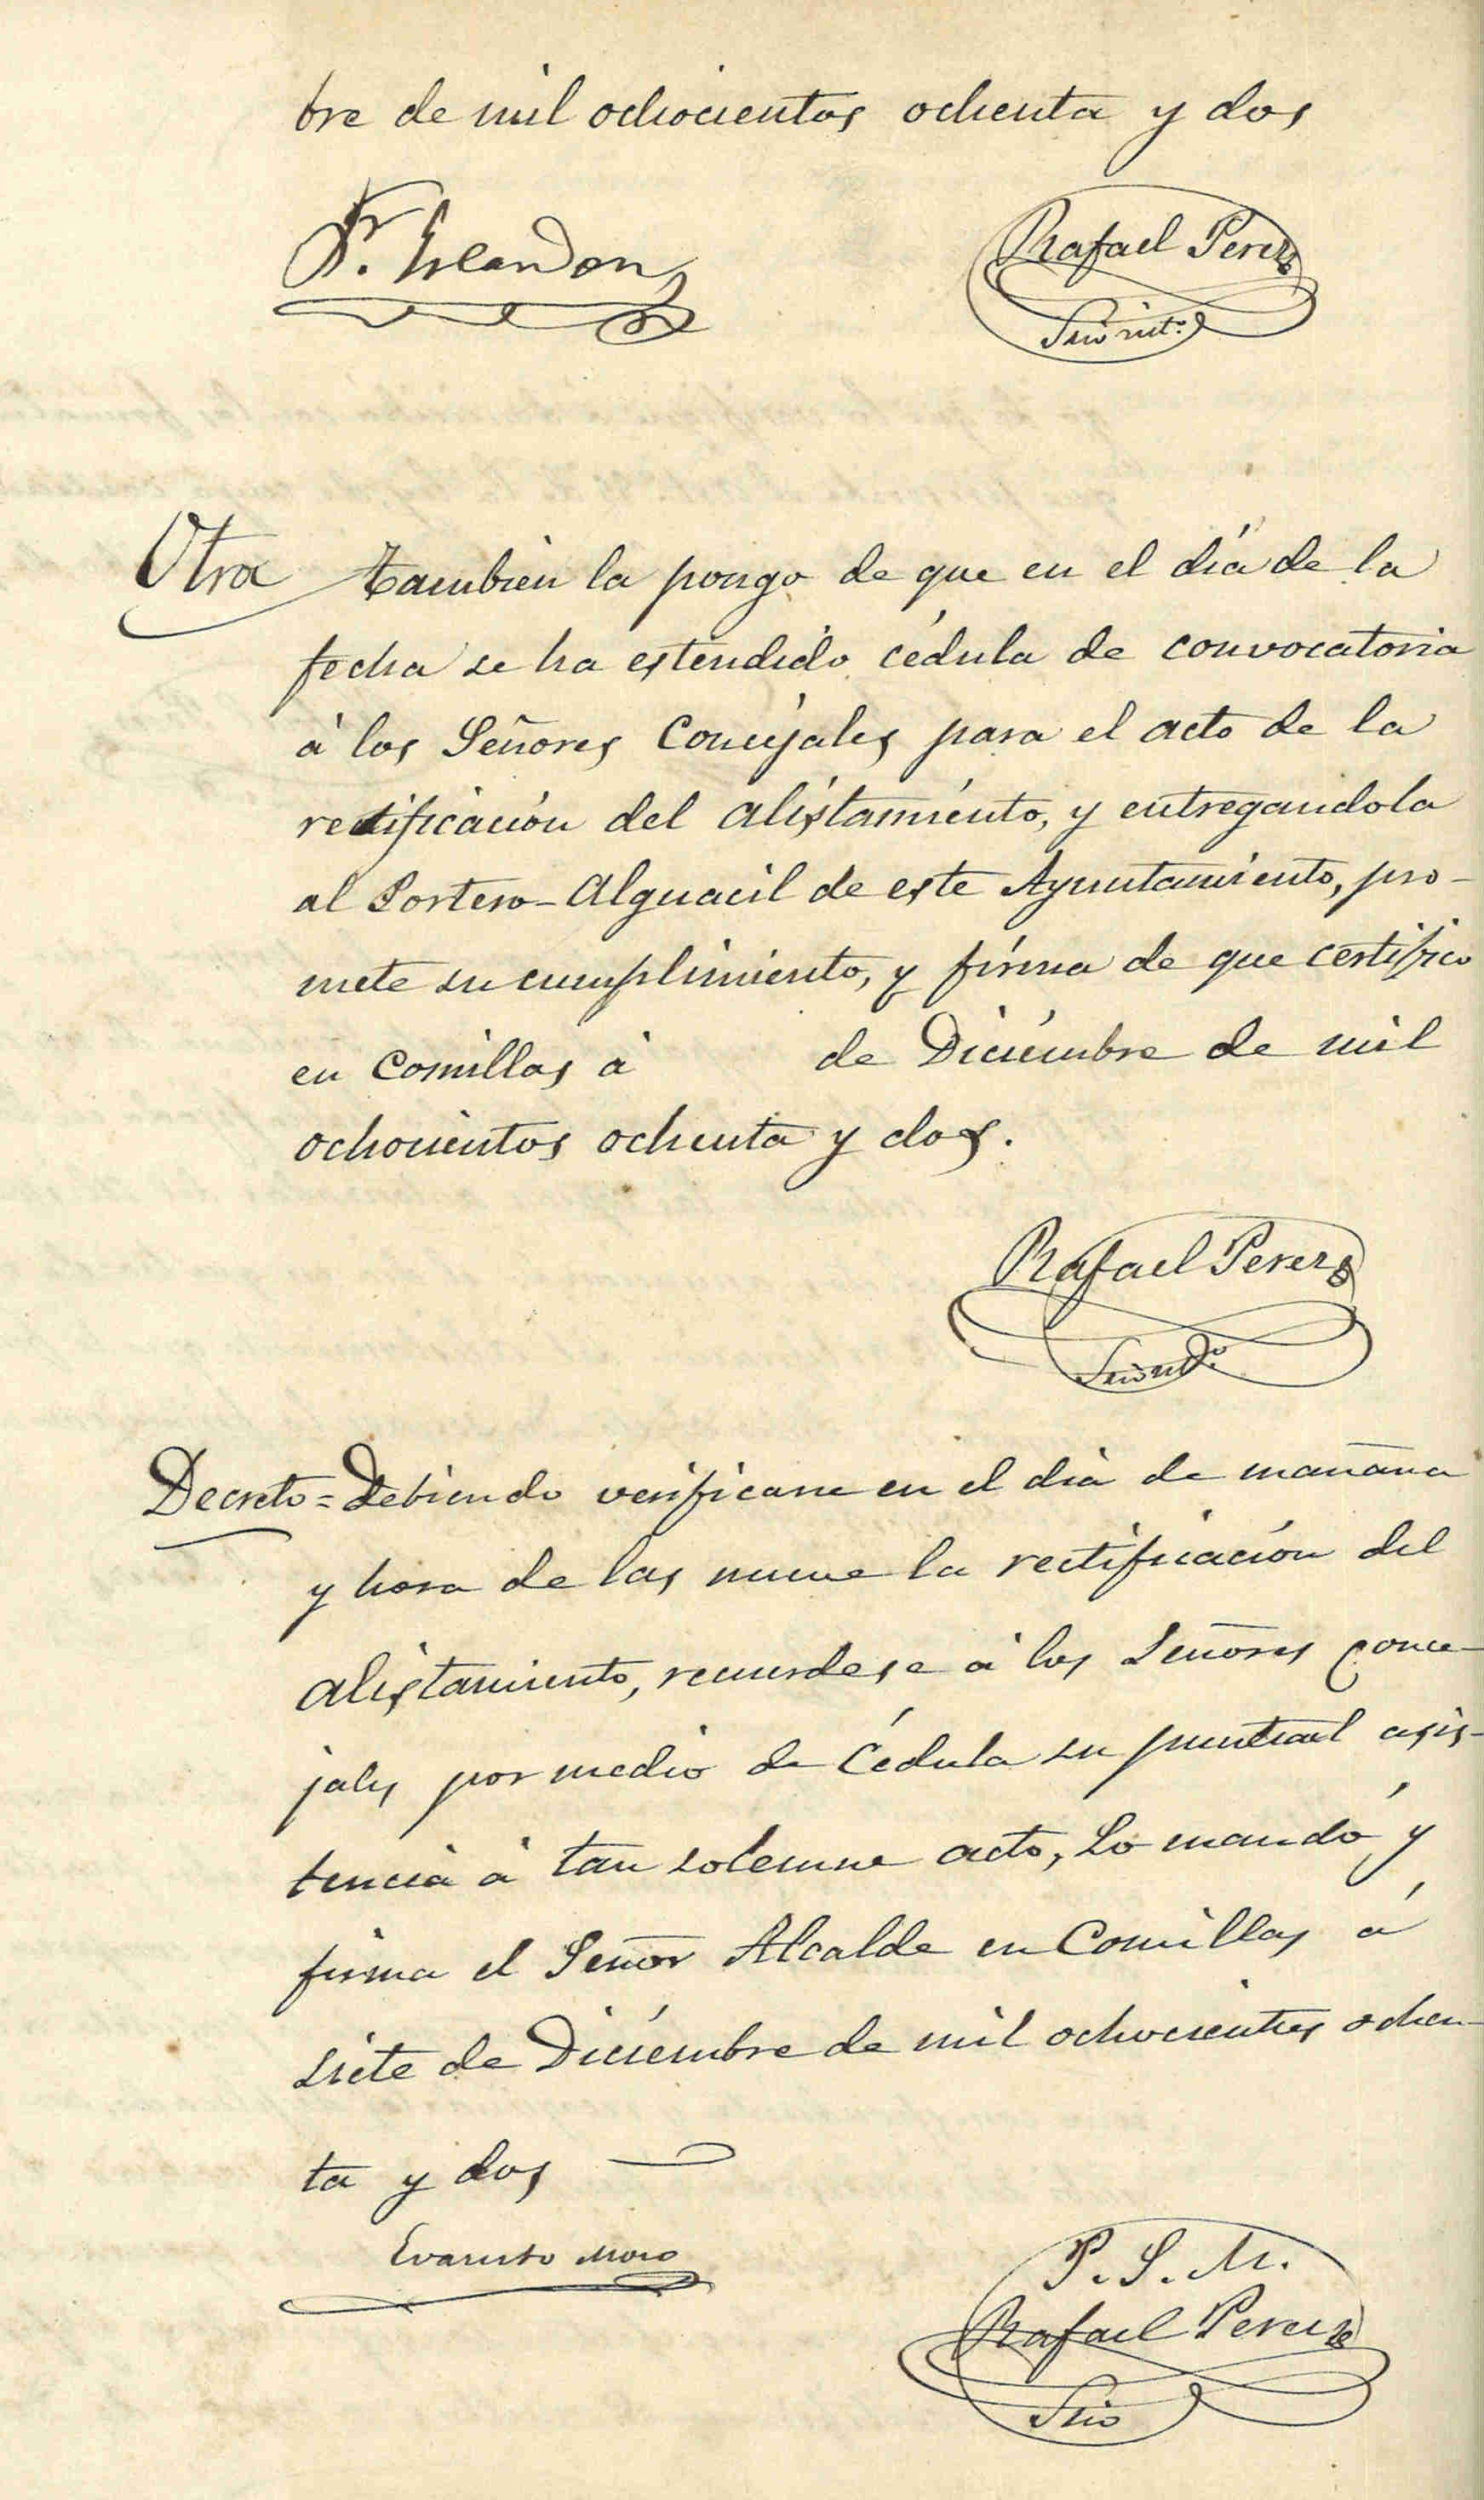 bre de mil ochocientos ochenta y dos
Rafael Perez
Srio int.º
Otra tambien la pongo de que en el día de la
fecha se ha estendido cédula de convocatoria
á los Señores Concejales para el acto de la
rectificación del alistamiento, y entregandola
al Portero-Alguacil de este Ayuntamiento, pro-
mete su cumplimiento, y firma de que certifico
en Comillas á de Diciembre de mil
ochocientos ochenta y dos.
Rafael Perez
Srio int.º
Decreto = Debiendo verificarse en el dia de mañana
y hora de las nueve la rectificación del
alistamiento, recuerdese á los Señores Conce-
jales por medio de Cédula su puntual asis-
tencia á tan solemne acto, Lo mandó y
firma el Señor Alcalde en Comillas á
siete de Diciembre de mil ochocientos ochen-
ta y dos
Evaristo Moro
P. S. M.
Rafael Perez
Srio